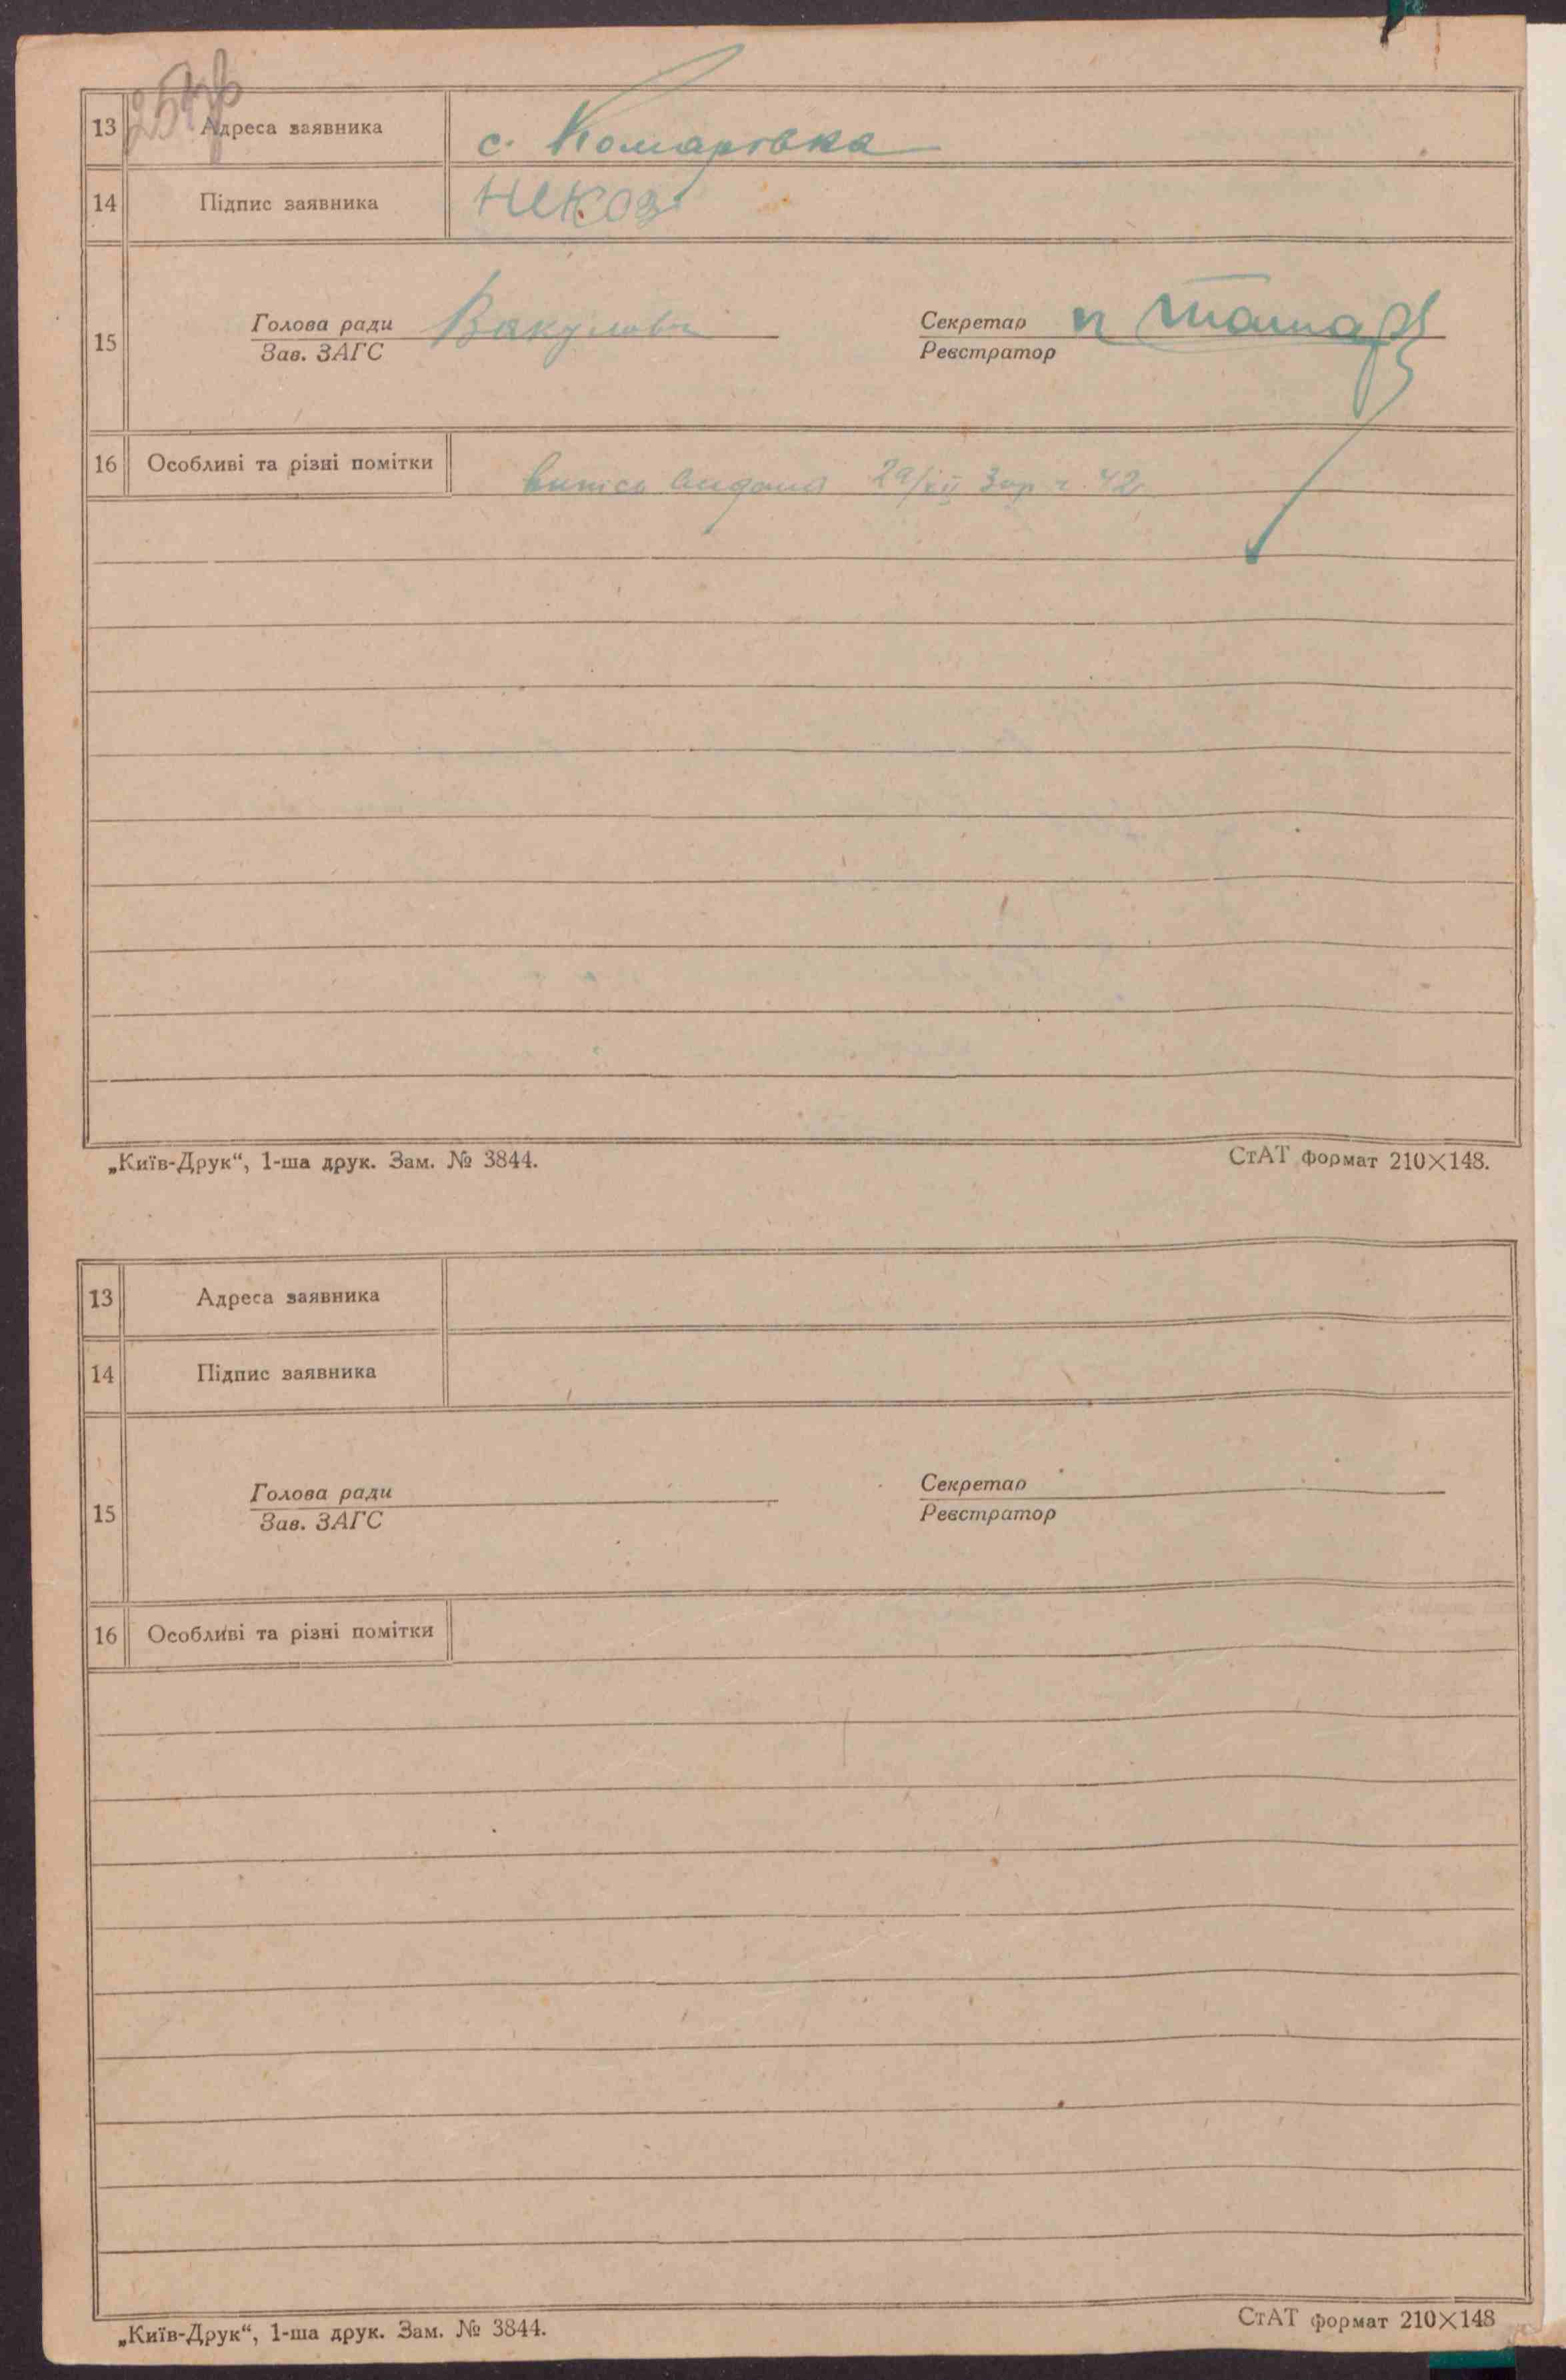 13 Адреса заявника с. Комаровка
14 Підпис заявника НЕКОЗ
15 Голова ради Секретар
Зав. ЗАГС Реєстратор
16 Особливі та різні помітки
„Київ-Друк“, 1-ша друк. Зам. № 3844. СтАТ формат 210×148.
13 Адреса заявника
14 Підпис заявника
15 Голова ради Секретар
Зав. ЗАГС Реєстратор
16 Особливі та різні помітки
„Київ-Друк“, 1-ша друк. Зам. № 3844. СтАТ формат 210×148